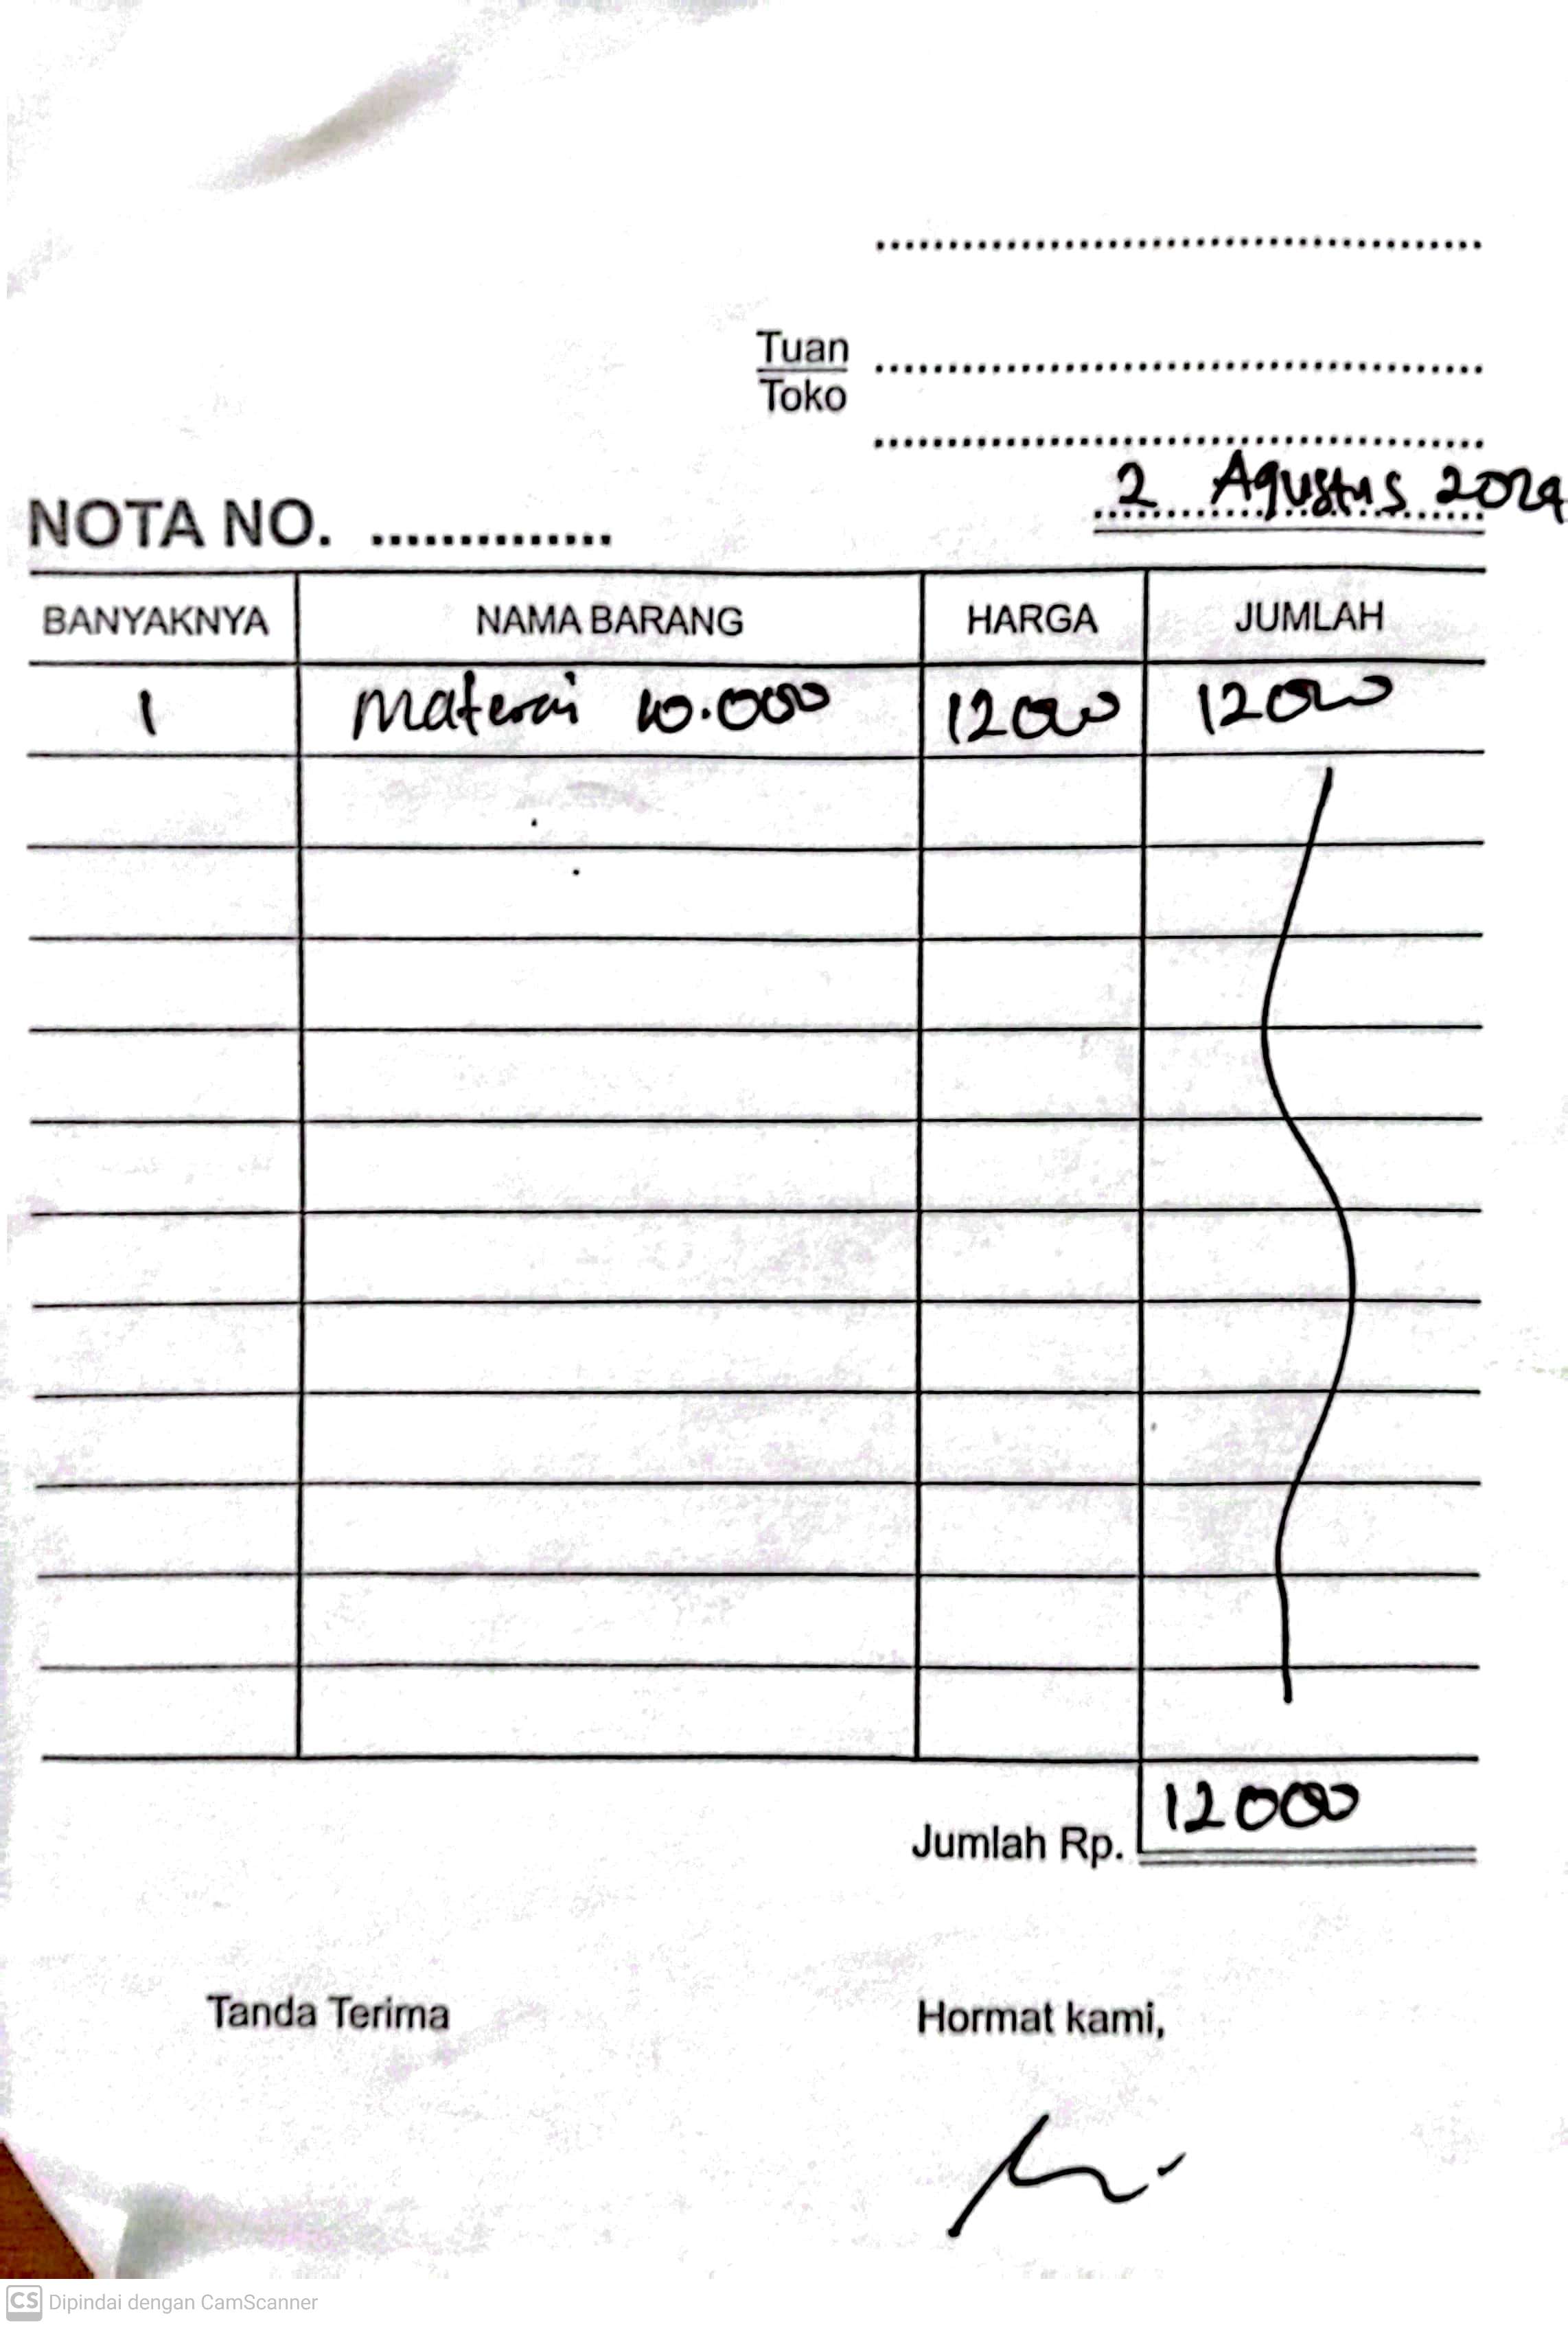 Tuan
Toko
2 Agustus 2024
NOTA NO. ..............
BANYAKNYA NAMA BARANG HARGA JUMLAH
1 Materai 10.000 12000 12000
Jumlah Rp. 12000
Tanda Terima Hormat kami,
CS Dipindai dengan CamScanner